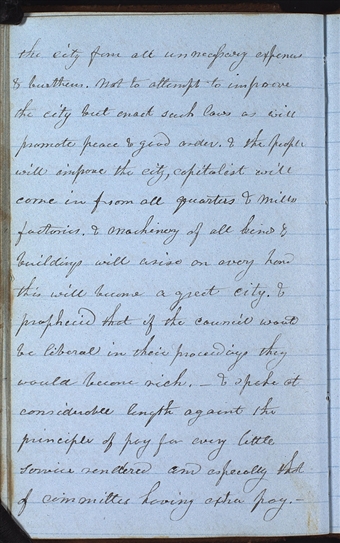 the city from all unnecessary expences
& burthens. not to attempt to improve
the city but enact such laws as will
promote peace & good order. & the people
will improve the city, capitalist will
come in from all quarters & mills
factories. & machinery of all kind &
buildings will arise on every hand
this will become a great city. &
prophecied that if the council would
be liberal in their proceedings they
would become rich. — & spoke at
considerable length against the
principle of pay for every little
service rendered and especially that
of committes having extra pay. —